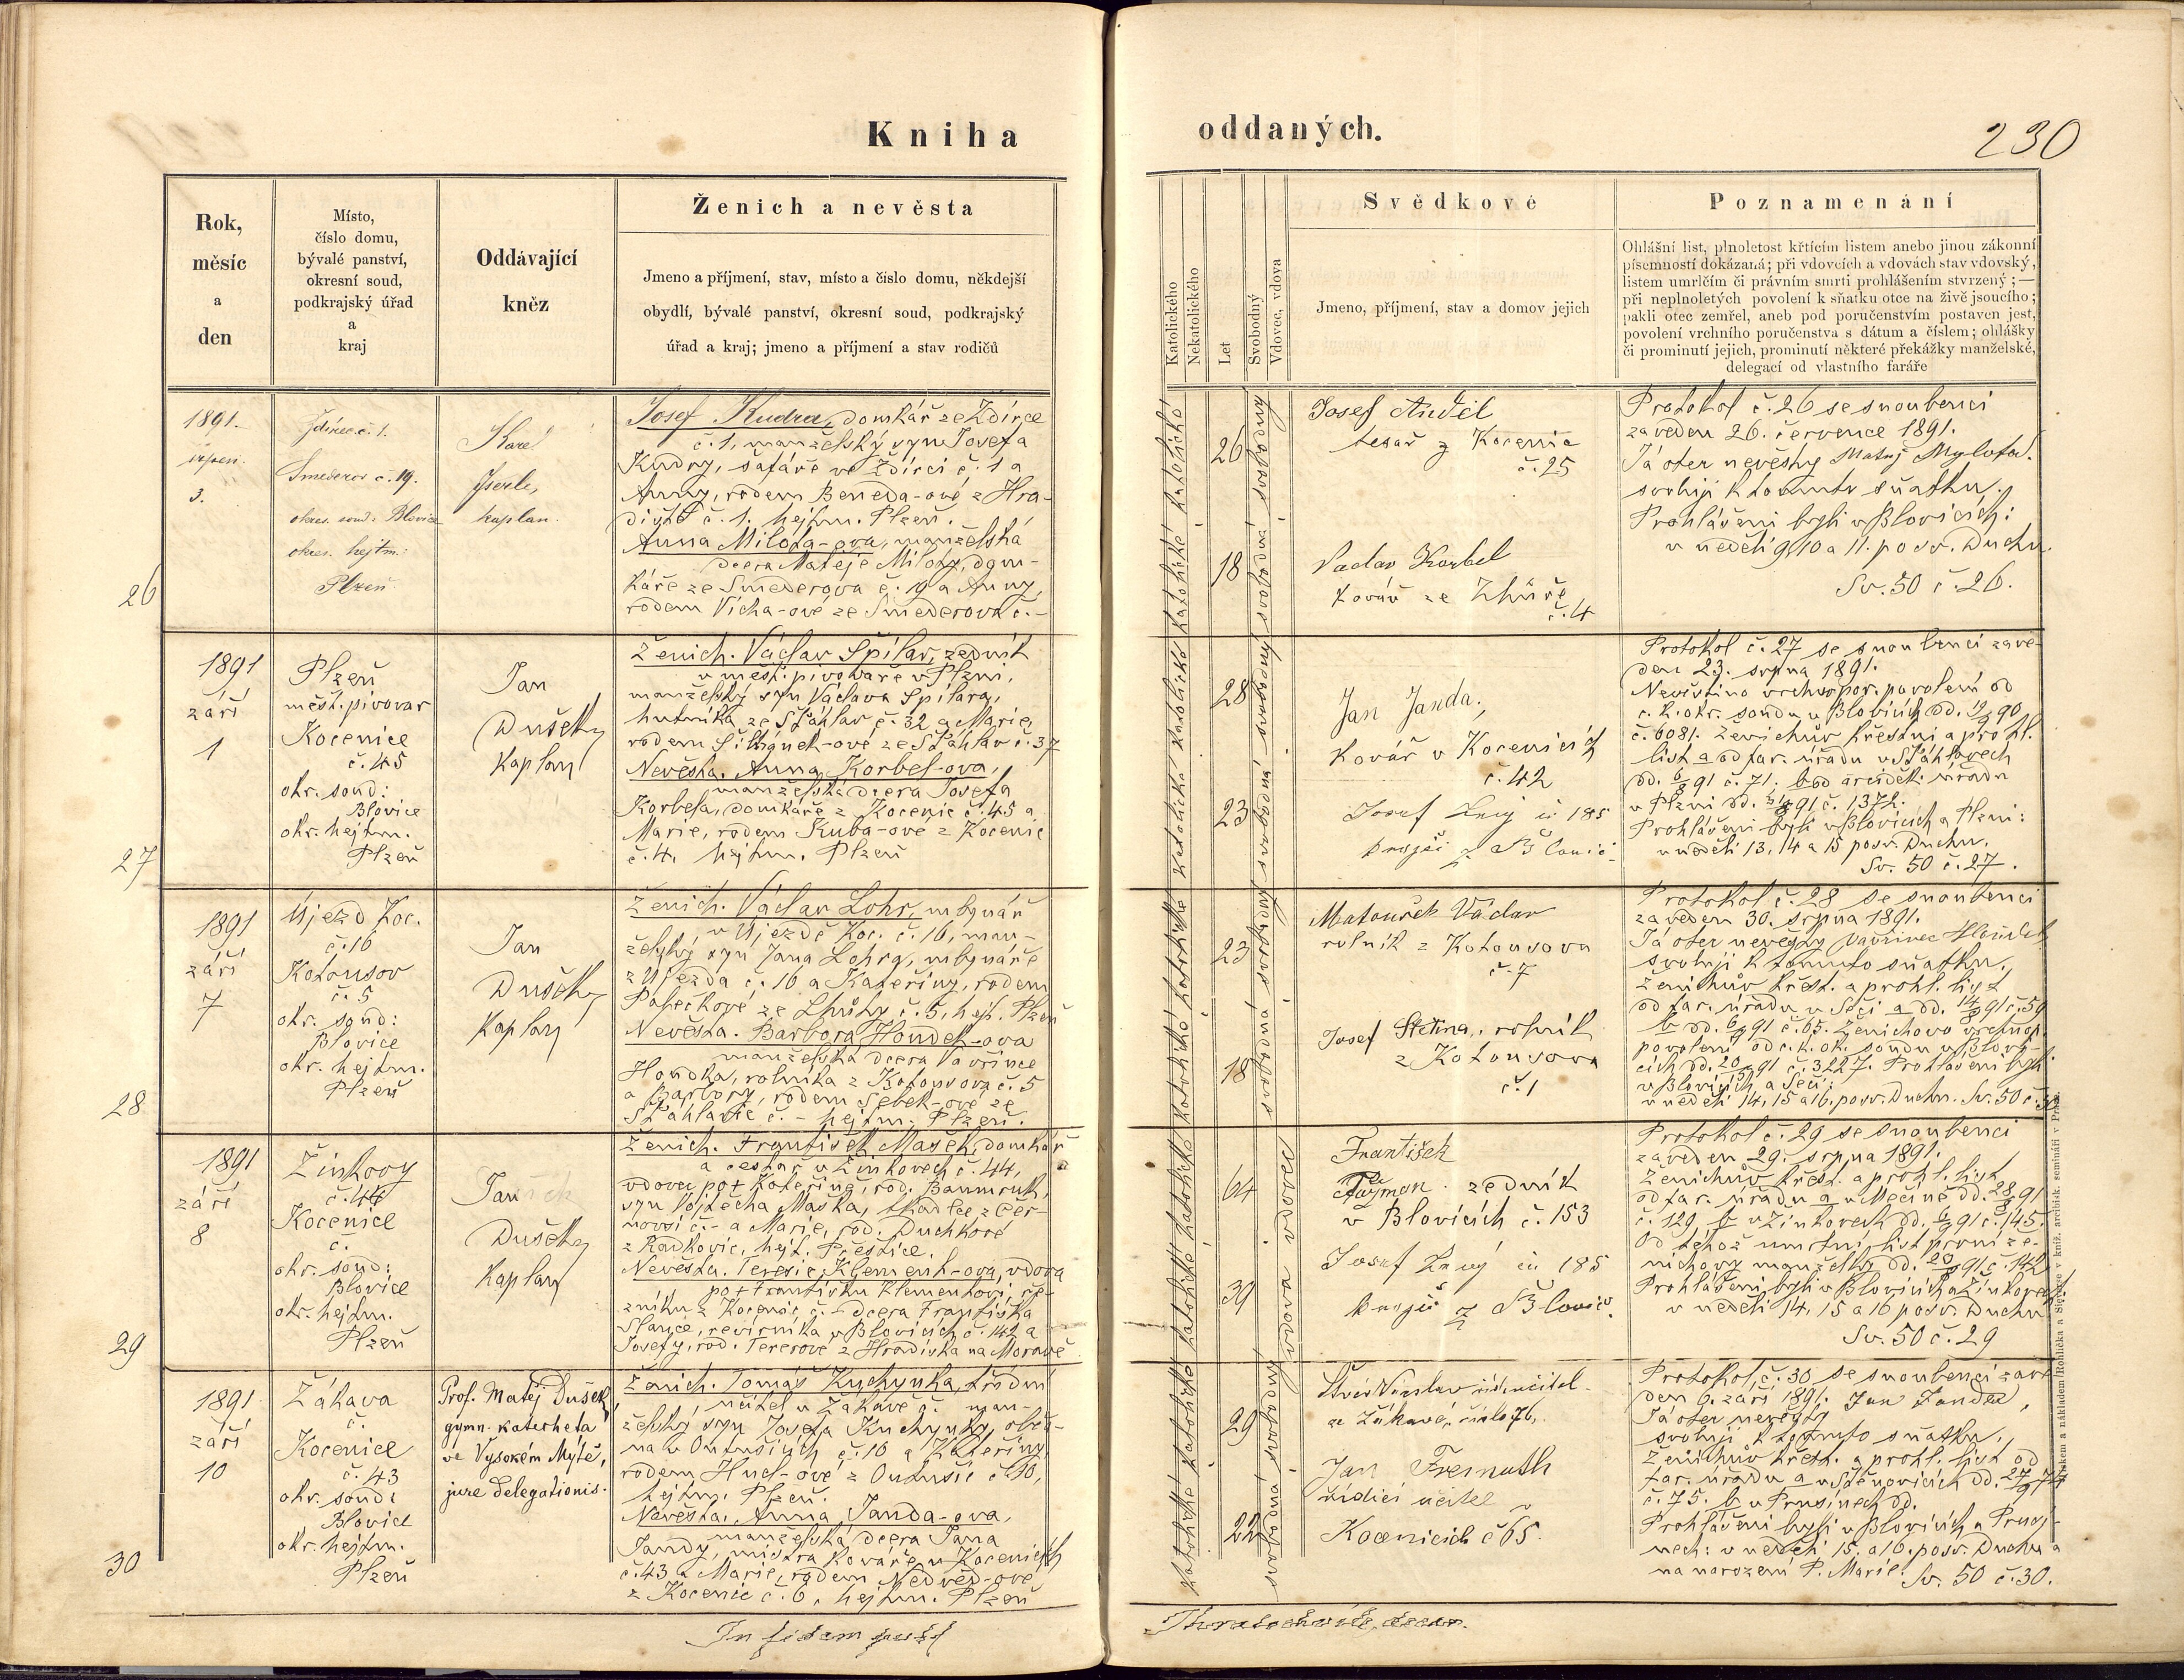 Kniha
oddaných.
230
Rok,
měsíc
a
den
Místo,
číslo domu,
bývalé panství,
okresní soud,
podkrajský úřad
a
kraj
Oddávající
kněz
Ženich a nevěsta
Jmeno a příjmení, stav, místo a číslo domu, někdejší
obydlí, bývalé panství, okresní soud, podkrajský
úřad a kraj; jmeno a příjmení a stav rodičů
Katolického
Nekatolického
Let
Svobodný
Vdovec, vdova
Svědkové
Jmeno, příjmení, stav a domov jejich
Poznamenání
Ohlášní list, plnoletost křtícím listem anebo jinou zákonní
písemností dokázaná; při vdovcích a vdovách stav vdovský,
listem umrlčím či právním smrti prohlášením stvrzený;—
při neplnoletých povolení k sňatku otce na živě jsoucího;
pakli otec zemřel, aneb pod poručenstvím postaven jest,
povolení vrchního poručenstva s dátum a číslem; ohlášky
či prominutí jejich, prominutí některé překážky manželské,
delegací od vlastního faráře
26
1891.
srpen.
3.
Ždírec č. 1.
Smederov č. 19.
okres. soud: Blovice
okres. hejtm.:
Plzeň.
Karel
kaplan.
Josef Kudra, domkář ze Ždírce
č. 1, manželský syn Josefa
Kudry, šafáře ve Ždírci č. 1 a
Anny, rodem Beneda-ové z Hra-
diště č. 1. hejtm. Plzeň.
Anna Milota-ova, manželská
dcera Matěje Miloty, dom-
káře ze Smederova č. 19 a Anny,
rodem Vícha-ové ze Smederova č. -
katolické
26
18
svobodný
svobodná
Josef Anděl
tesař z Kocenic
č. 25
Vaclav Korbel
kovář ze Zhůře
č. 4
Protokol č. 26 se snoubenci
zaveden 26. července 1891.
Já otec nevěsty Matej Mylota.
svoluji k tomuto sňatku.
Prohlášeni byli v Blovicích:
v neděli 9, 10 a 11. po sv. Duchu.
Sv. 50 č. 26.
27
1891
září
1
Plzeň
měšt. pivovar
Kocenice
č. 45
okr. soud:
Blovice
okr. hejtm.
Plzeň
Jan
Dušek,
kaplan
Ženich. Václav Špilar, zedník
v měšt. pivováře v Plzni,
manželský syn Václava Špilara,
hutníka ze Šťáhlav č. 32 a Marie,
rodem ze Šťáhlav č. 37
Nevěsta. Anna Korbel-ova,
manželská dcera Josefa
Korbela, domkáře z Kocenic č. 45 a
Marie, rodem Kuba-ové z Kocenic
č. 4, hejtm. Plzeň
28
23
Jan Janda,
Kovář v Kocenicích
č. 42
Josef čís 185
krejčí z Blovic
Protokol č. 27 se snoubenci zave-
den 23. srpna 1891.
Nevěstino vrchnopor. povolení od
c. k. okr. soudu v Blovicích dd.
č. 6081. Ženichův křestní a prohl.
list a od far. úřadu v Šťáhlavech
dd. č. 71. b od arciděk. úřadu
v Plzni dd. č. 1372.
Prohlášeni byli v Blovicích a Plzni:
v neděli 13, 14 a 15 po sv. Duchu.
Sv. 50 č. 27.
28
1891
září
7
Újezd Koc.
č. 16
Kotousov
č. 5
okr. soud:
Blovice
okr. hejtm.
Plzeň
Jan
Dušek,
kaplan
Ženich. Václav Lohr, mlynář
v Újezdě Koc. č. 16, man-
želský syn Jana Lohra, mlynáře
z Újezda č. 16 a Kateřiny, rodem
ze Lhůty č. 5, hejt. Plzeň
Nevěsta. Barbora Houdek-ova
manželská dcera Vavřince
Houdka, rolníka z Kotousova č. 5
a Barbory, rodem Šebek-ové ze
Šťáhlavic č. - hejtm. Plzeň.
23
18
Matoušek Václav
rolník z Kotousova
č. 7
Josef Štětina, rolník
z Kotousova
č. 1
Protokol č. 28 se snoubenci
zaveden 30. srpna 1891.
Já otec nevěsty Vavřinec
svoluji k tomuto sňatku.
Ženichův křest. a prohl. list
od far. úřadu v Seči a dd. č. 59
b dd. č. 65. Ženichovo vrchnop.
povolení od c. k. ok. soudu v Blovi-
cích dd. č. 3227. Prohlášeni byli
v Blovicích a Seči:
v neděli 14, 15 a 16. po sv. Duchu. Sv. 50 č.
29
1891
září
8
Žinkovy
č. 44
Kocenice
č.
okr. soud:
Blovice
okr. hejtm.
Plzeň
Jan
Dušek,
kaplan
Ženich. František Mašek, domkář
a cestář v Žinkovech č. 44,
vdovec po † Kateřině, rod. Baumruk,
syn Vojtěcha Maška, tkadlce z Čer-
č. - a Marie, rod. Duchkové
z Radkovic, hejt. Přeštice.
Nevěsta. Terezie Klement-ova, vdova
po † Františku Klementovi, ře-
zníku z Kocenic č. - dcera Františka
revírníka v Blovicích č. 142 a
Josefy, rod. z Hradiska na Moravě
64
39
vdovec
vdova
František
Fajman. zedník
v Blovicích č. 153
Josef čís 185
krejčí z Blovic.
Protokol č. 29 se snoubenci
zaveden 29. srpna 1891.
Ženichův křest. a prohl. list
od far. úřadu a v Mečíně dd.
č. 129, b v Žinkovech dd. č. 145.
Od téhož úmrtní list první že-
nichovy manželky dd. č. 142
Prohlášeni byli v Blovicích a Žinkovech
v neděli 14, 15 a 16 po sv. Duchu
Sv. 50 č. 29
30
1891
září
10
Žákava
č.
Kocenice
č. 43
okr. soud:
Blovice
okr. hejtm.
Plzeň
Prof. Matěj Dušek,
gymn. katecheta
ve Vysokém Mýtě,
jure delegationis.
Ženich. Tomáš Kuchynka, třídní
učitel v Žákavě č. man-
želský syn Josefa Kuchynky,
v Outušicích č. 10 a Kateřiny
rodem z Outušic č. 10,
hejtm. Plzeň.
Nevěsta. Anna Janda-ova,
manželská dcera Jana
Jandy, mistra kováře v Kocenicích
č. 43 a Marie, rodem Nedvěd-ové
z Kocenic č. 6, hejtm. Plzeň
29
22
ze Žákavé, číslo 76.
Jan Freinuth
řídící učitel v
Kocenicích č 65.
Protokol č. 30 se snoubenci zave
den 6. září 1891. Jan Janda,
Já otec nevěsty
svoluji k tomuto sňatku.
Ženichův křest. a prohl. list od
far. úřadu a v Štěnovicích dd.
č. 75. b v Prusinech dd.
Prohlášeni byli v Blovicích a Prusi-
nech: v neděli 15. a 16. po sv. Duchu a
na narození P. Marie.
Sv. 50 č. 30.
In fidem